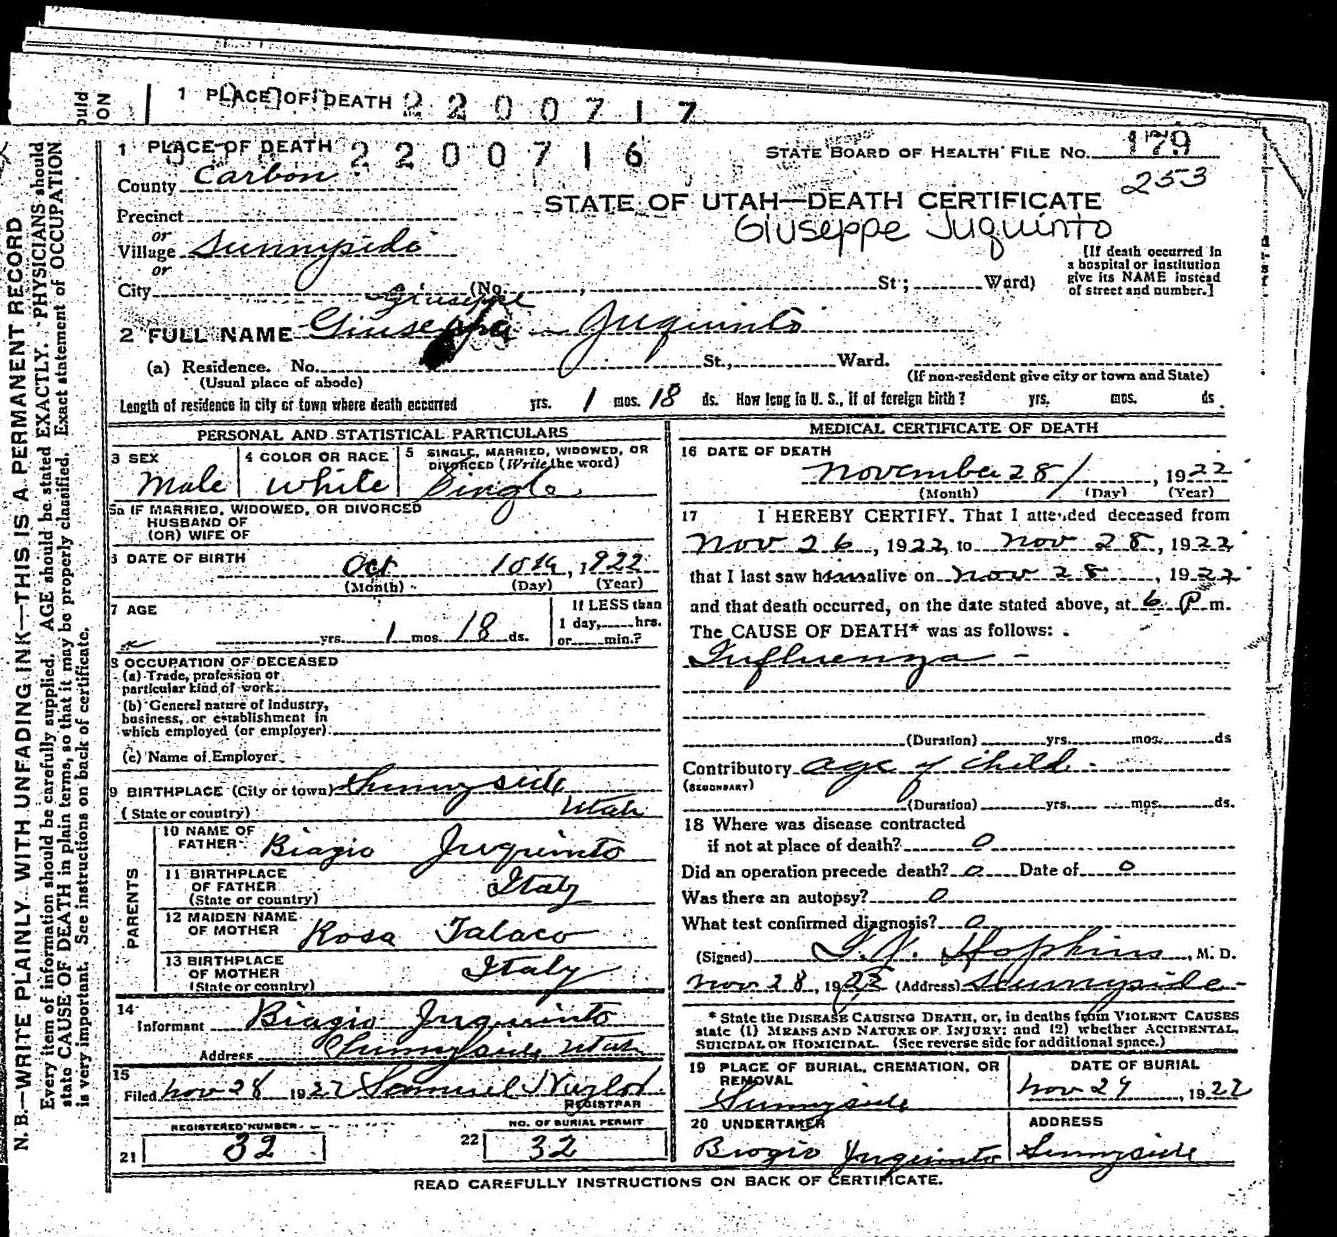 1 PLACE OF DEATH 2 2 0 0 7 1 7
1 PLACE OF DEATH 2 2 0 0 7 1 6
STATE BOARD OF HEALTH FILE NO. 179
253
County Carbon
STATE OF UTAH—DEATH CERTIFICATE
Precinct
Giuseppe Juquinto
or
Village Sunnyside
or
City (No. , St; Ward)
[If death occurred in
a hospital or institution
give its NAME instead
of street and number.]
Giuseppe
2 FULL NAME Juquinto
(a) Residence. No. St., Ward.
(Usual place of abode) (If non-resident give city or town and State)
Length of residence in city or town where death occurred yrs. 1 mos. 18 ds. How long in U. S., if of foreign birth? yrs. mos. ds.
PERSONAL AND STATISTICAL PARTICULARS
3 SEX
Male
4 COLOR OR RACE
White
5 SINGLE, MARRIED, WIDOWED, OR
DIVORCED (Write the word)
Single
5a IF MARRIED, WIDOWED, OR DIVORCED
HUSBAND OF
(OR) WIFE OF
6 DATE OF BIRTH
Oct 10th, 1922
(Month) (Day) (Year)
7 AGE
yrs. 1 mos. 18 ds.
If LESS than
1 day, hrs.
or min.?
8 OCCUPATION OF DECEASED
(a) Trade, profession or
particular kind of work
(b) General nature of industry,
business, or establishment in
which employed (or employer)
(c) Name of Employer
9 BIRTHPLACE (City or town) Sunnyside
(State or country) Utah
PARENTS
10 NAME OF
FATHER Biagio Juquinto
11 BIRTHPLACE
OF FATHER Italy
(State or country)
12 MAIDEN NAME
OF MOTHER Rosa Talaco
13 BIRTHPLACE
OF MOTHER Italy
(State or country)
14
Informant Biagio Juquinto
Address Sunnyside Utah
15
Filed Nov 28 1922 Samuel
REGISTRAR
REGISTERED NUMBER
21 32
NO. OF BURIAL PERMIT
22 32
MEDICAL CERTIFICATE OF DEATH
16 DATE OF DEATH
November 28, 1922
(Month) (Day) (Year)
17 I HEREBY CERTIFY, That I attended deceased from
Nov 26, 1922, to Nov 28, 1922
that I last saw him alive on Nov 28, 1922
and that death occurred, on the date stated above, at 6 P m.
The CAUSE OF DEATH* was as follows:
Influenza
(Duration) yrs. mos. ds
Contributory age of child
(SECONDARY)
(Duration) yrs. mos. ds.
18 Where was disease contracted
if not at place of death? 0
Did an operation precede death? 0 Date of 0
Was there an autopsy? 0
What test confirmed diagnosis? 0
(Signed) Hopkins, M. D.
Nov 28, 1922 (Address) Sunnyside
* State the DISEASE CAUSING DEATH, or, in deaths from VIOLENT CAUSES
state (1) MEANS AND NATURE OF INJURY; and (2) whether ACCIDENTAL,
SUICIDAL OR HOMICIDAL. (See reverse side for additional space.)
19 PLACE OF BURIAL, CREMATION, OR
REMOVAL
Sunnyside
DATE OF BURIAL
Nov 29, 1922
20 UNDERTAKER
Biogio Juquinto
ADDRESS
Sunnyside
READ CAREFULLY INSTRUCTIONS ON BACK OF CERTIFICATE.
N. B.—WRITE PLAINLY, WITH UNFADING INK—THIS IS A PERMANENT RECORD
Every item of information should be carefully supplied. AGE should be stated EXACTLY. PHYSICIANS should
state CAUSE OF DEATH in plain terms, so that it may be properly classified. Exact statement of OCCUPATION
is very important. See instructions on back of certificate.